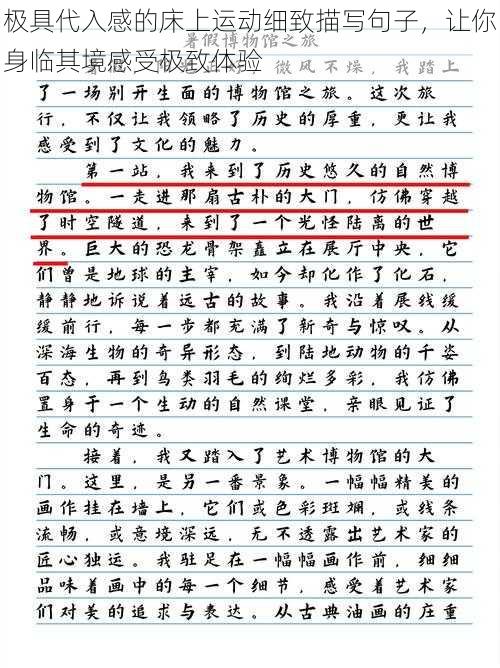 极具代入感的床上运动细致描写句子，让你
身临其境感受极致体验
暑假博物馆之旅
微风不燥，我踏上
了一场别开生面的博物馆之旅。这次旅
行，不仅让我领略了历史的厚重，更让我
感受到了文化的魅力。
第一站，我来到了历史悠久的自然博
物馆。一走进那扇古朴的大门，仿佛穿越
了时空隧道，来到了一个光怪陆离的世
界。巨大的恐龙骨架矗立在展厅中央，它
们曾是地球的主宰，如今却化作了化石，
静静地诉说着远古的故事。我沿着展线缓
缓前行，每一步都充满了新奇与惊叹。从
深海生物的奇异形态，到陆地动物的千姿
百态，再到鸟类羽毛的绚烂多彩，我仿佛
置身于一个生动的自然课堂，亲眼见证了
生命的奇迹。
接着，我又踏入了艺术博物馆的大
门。这里，是另一番景象。一幅幅精美的
画作挂在墙上，它们或色彩斑斓，或线条
流畅，或意境深远，无不透露出艺术家的
匠心独运。我驻足在一幅幅画作前，细细
品味着画中的每一个细节，感受着艺术家
们对美的追求与表达。从古典油画的庄重